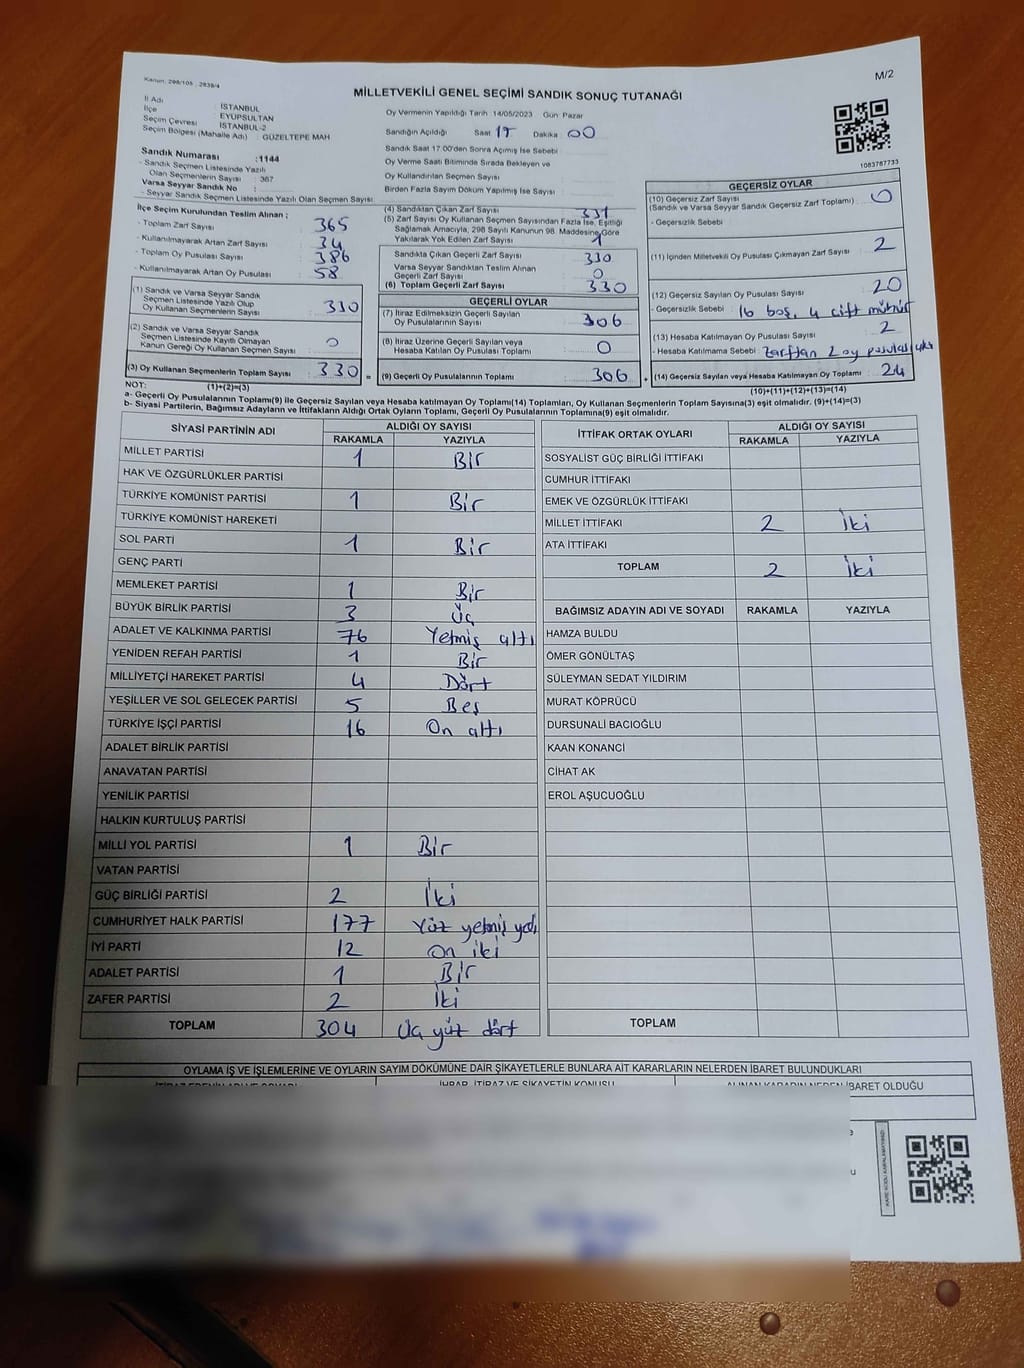 Kanun: 298/105 , 2839/4
M/2
MİLLETVEKİLİ GENEL SEÇİMİ SANDIK SONUÇ TUTANAĞI
İl Adı : İSTANBUL
İlçe : EYÜPSULTAN
Seçim Çevresi : İSTANBUL-2
Seçim Bölgesi (Mahalle Adı) : GÜZELTEPE MAH
Sandık Numarası :1144
- Sandık Seçmen Listesinde Yazılı
Olan Seçmenlerin Sayısı : 367
Varsa Seyyar Sandık No :
- Seyyar Sandık Seçmen Listesinde Yazılı Olan Seçmen Sayısı
Oy Vermenin Yapıldığı Tarih 14/05/2023 Gün Pazar
Sandığın Açıldığı Saat 17 Dakika 00
Sandık Saat 17.00'den Sonra Açımış İse Sebebi
Oy Verme Saati Bitiminde Sırada Bekleyen ve
Oy Kullandırılan Seçmen Sayısı
Birden Fazla Sayım Döküm Yapılmış İse Sayısı :
1083787733
İlçe Seçim Kurulundan Teslim Alınan ;
- Toplam Zarf Sayısı : 365
- Kullanılmayarak Artan Zarf Sayısı : 34
- Toplam Oy Pusulası Sayısı : 386
- Kullanılmayarak Artan Oy Pusulası : 58
(1) Sandık ve Varsa Seyyar Sandık
Seçmen Listesinde Yazılı Olup
Oy Kullanan Seçmenlerin Sayısı : 330
(2) Sandık ve Varsa Seyyar Sandık
Seçmen Listesinde Kayıtlı Olmayan
Kanun Gereği Oy Kullanan Seçmen Sayısı : 0
(3) Oy Kullanan Seçmenlerin Toplam Sayısı : 330
(4) Sandıktan Çıkan Zarf Sayısı : 331
(5) Zarf Sayısı Oy Kullanan Seçmen Sayısından Fazla İse, Eşitliği
Sağlamak Amacıyla, 298 Sayılı Kanunun 98. Maddesine Göre
Yakılarak Yok Edilen Zarf Sayısı : 1
Sandıkta Çıkan Geçerli Zarf Sayısı : 330
Varsa Seyyar Sandıktan Teslim Alınan
Geçerli Zarf Sayısı : 0
(6) Toplam Geçerli Zarf Sayısı : 330
GEÇERLİ OYLAR
(7) İtiraz Edilmeksizin Geçerli Sayılan
Oy Pusulalarının Sayısı : 306
(8) İtiraz Üzerine Geçerli Sayılan veya
Hesaba Katılan Oy Pusulası Toplamı : 0
(9) Geçerli Oy Pusulalarının Toplamı : 306
GEÇERSİZ OYLAR
(10) Geçersiz Zarf Sayısı
(Sandık ve Varsa Seyyar Sandık Geçersiz Zarf Toplamı) : 0
- Geçersizlik Sebebi :
(11) İçinden Milletvekili Oy Pusulası Çıkmayan Zarf Sayısı : 2
(12) Geçersiz Sayılan Oy Pusulası Sayısı : 20
- Geçersizlik Sebebi : 16 boş, 4 çift mühür
(13) Hesaba Katılmayan Oy Pusulası Sayısı : 2
- Hesaba Katılmama Sebebi : Zarftan 2 oy pusulası
(14) Geçersiz Sayılan veya Hesaba Katılmayan Oy Toplamı : 24
NOT: (1)+(2)=(3) (10)+(11)+(12)+(13)=(14)
a- Geçerli Oy Pusulalarının Toplamı(9) ile Geçersiz Sayılan veya Hesaba katılmayan Oy Toplamı(14) Toplamları, Oy Kullanan Seçmenlerin Toplam Sayısına(3) eşit olmalıdır. (9)+(14)=(3)
b- Siyasi Partilerin, Bağımsız Adayların ve İttifakların Aldığı Ortak Oyların Toplamı, Geçerli Oy Pusulalarının Toplamına(9) eşit olmalıdır.
SİYASİ PARTİNİN ADI ALDIĞI OY SAYISI
RAKAMLA YAZIYLA
MİLLET PARTİSİ 1 Bir
HAK VE ÖZGÜRLÜKLER PARTİSİ
TÜRKİYE KOMÜNİST PARTİSİ 1 Bir
TÜRKİYE KOMÜNİST HAREKETİ
SOL PARTİ 1 Bir
GENÇ PARTİ
MEMLEKET PARTİSİ 1 Bir
BÜYÜK BİRLİK PARTİSİ 3 Üç
ADALET VE KALKINMA PARTİSİ 76 Yetmiş altı
YENİDEN REFAH PARTİSİ 1 Bir
MİLLİYETÇİ HAREKET PARTİSİ 4 Dört
YEŞİLLER VE SOL GELECEK PARTİSİ 5 Beş
TÜRKİYE İŞÇİ PARTİSİ 16 On altı
ADALET BİRLİK PARTİSİ
ANAVATAN PARTİSİ
YENİLİK PARTİSİ
HALKIN KURTULUŞ PARTİSİ
MİLLİ YOL PARTİSİ 1 Bir
VATAN PARTİSİ
GÜÇ BİRLİĞİ PARTİSİ 2 İki
CUMHURİYET HALK PARTİSİ 177 Yüz yetmiş yedi
İYİ PARTİ 12 On iki
ADALET PARTİSİ 1 Bir
ZAFER PARTİSİ 2 İki
TOPLAM 304 Üç yüz dört
İTTİFAK ORTAK OYLARI ALDIĞI OY SAYISI
RAKAMLA YAZIYLA
SOSYALİST GÜÇ BİRLİĞİ İTTİFAKI
CUMHUR İTTİFAKI
EMEK VE ÖZGÜRLÜK İTTİFAKI
MİLLET İTTİFAKI 2 İki
ATA İTTİFAKI
TOPLAM 2 İki
BAĞIMSIZ ADAYIN ADI VE SOYADI RAKAMLA YAZIYLA
HAMZA BULDU
ÖMER GÖNÜLTAŞ
SÜLEYMAN SEDAT YILDIRIM
MURAT KÖPRÜCÜ
DURSUNALİ BACIOĞLU
KAAN KONANCİ
CİHAT AK
EROL AŞUCUOĞLU
TOPLAM
OYLAMA İŞ VE İŞLEMLERİNE VE OYLARIN SAYIM DÖKÜMÜNE DAİR ŞİKAYETLERLE BUNLARA AİT KARARLARIN NELERDEN İBARET BULUNDUKLARI
İTİRAZ EDENİN ADI VE SOYADI İHBAR, İTİRAZ VE ŞİKAYETİN KONUSU ALINAN KARARIN NEDEN İBARET OLDUĞU